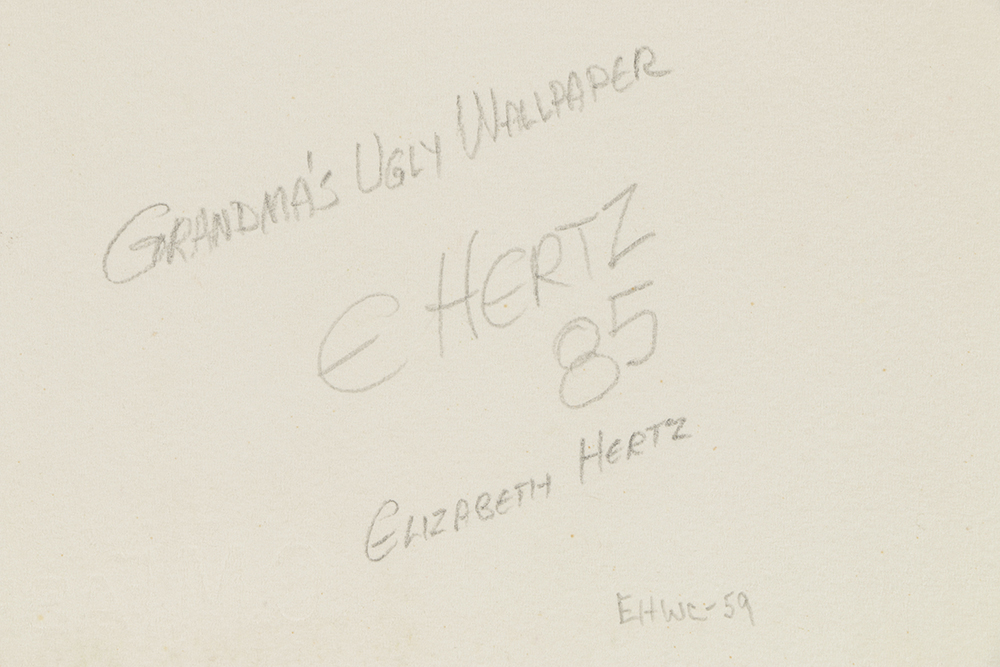 GRANDMA'S UGLY WALLPAPER
E HERTZ
85
ELIZABETH HERTZ
EHWC-59